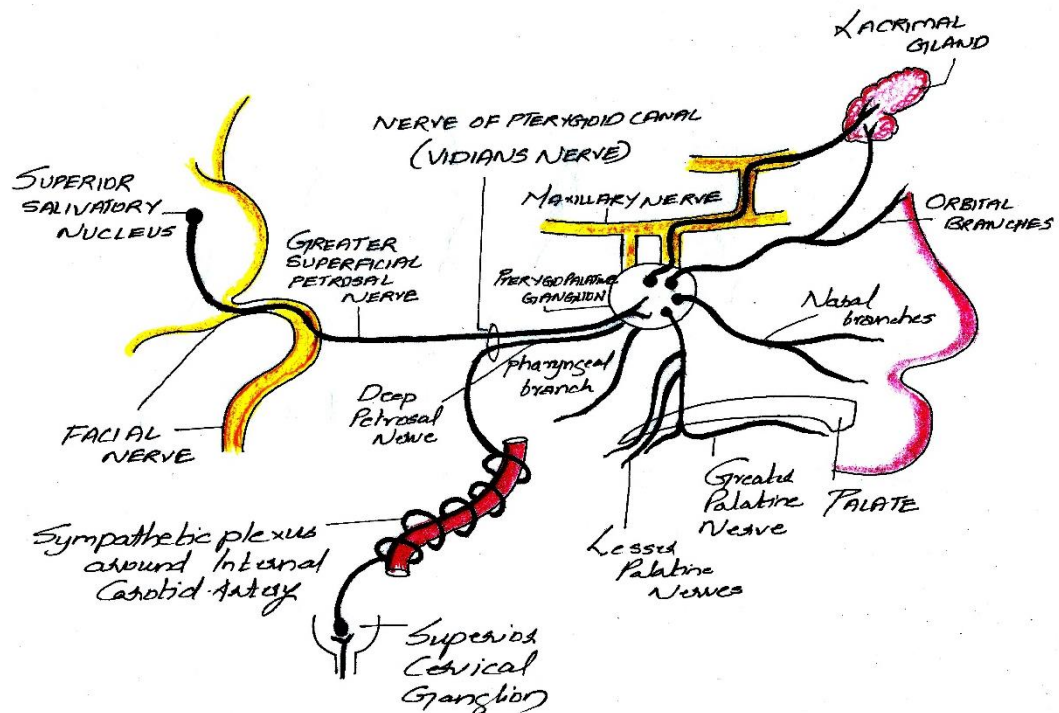 LACRIMAL
GLAND
NERVE OF PTERYGOID CANAL
(VIDIANS NERVE)
SUPERIOR
SALIVATORY
NUCLEUS
MAXILLARY NERVE
ORBITAL
BRANCHES
GREATER
SUPERFICIAL
PETROSAL
NERVE
PTERYGOPALATINE
GANGLION
Nasal
branches
pharyngeal
branch
Deep
Petrosal
Nerve
FACIAL
NERVE
Greater
Palatine
Nerve
PALATE
Lesser
Palatine
Nerves
Sympathetic plexus
around Internal
Carotid Artery
Superior
Cervical
Ganglion